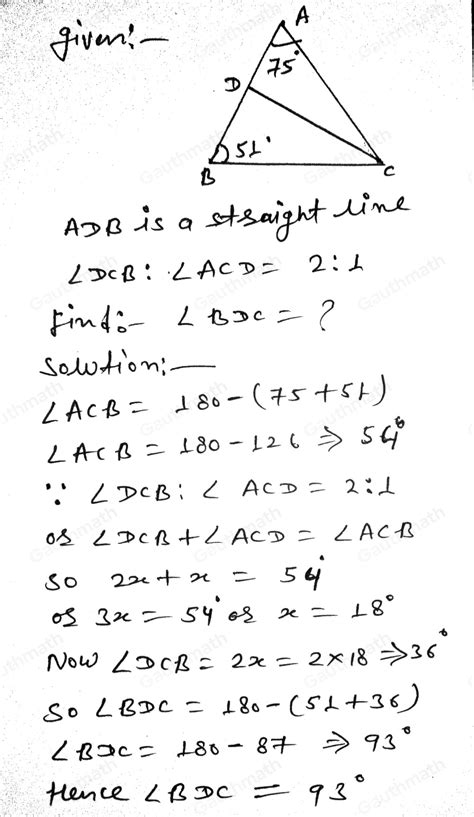 given:-
A
75°
D
51°
B
C
ADB is a straight line
∠DCB : ∠ACD = 2:1
Find:- ∠BDC = ?
Solution:—
∠ACB = 180-(75+51)
∠ACB = 180-126 ⇒ 54°
∵ ∠DCB : ∠ACD = 2:1
or ∠DCB + ∠ACD = ∠ACB
so 2x + x = 54°
or 3x = 54° or x = 18°
Now ∠DCB = 2x = 2×18 ⇒ 36°
So ∠BDC = 180-(51+36)
∠BDC = 180-87 ⇒ 93°
Hence ∠BDC = 93°
Gauthmath